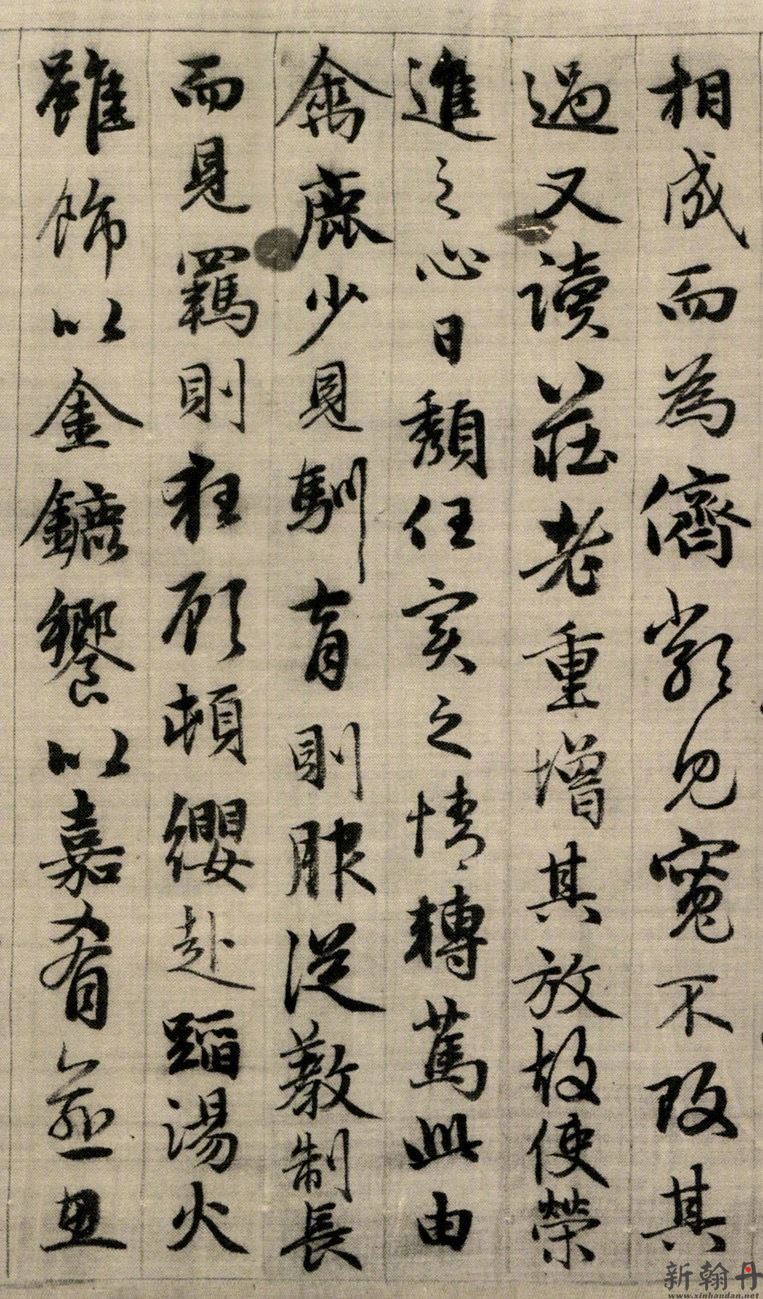 相成而為儕類見寬不攻其
過又讀莊老重增其放故使榮
進之心日頹任實之情轉篤此由
禽鹿少見馴育則服從教制長
而見羈則狂顧頓纓赴蹈湯火
雖飾以金鑣饗以嘉肴愈思
新翰丹
www.xinhandan.net